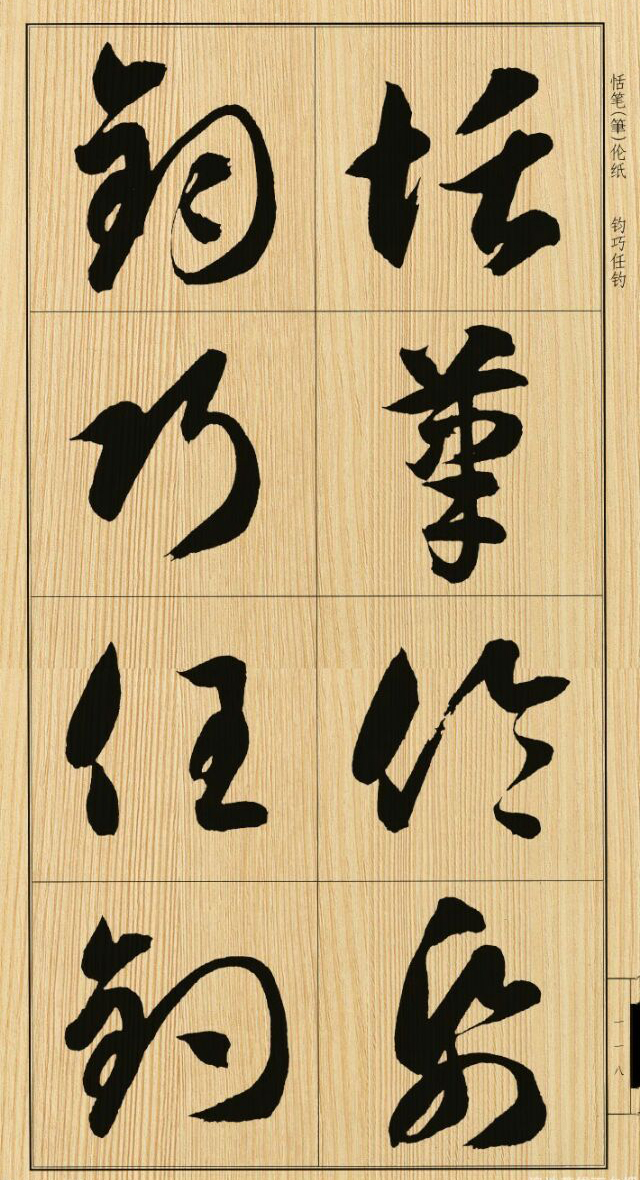 恬筆倫紙
鈞巧任釣
恬笔(筆)伦纸 钧巧任钓
一一八